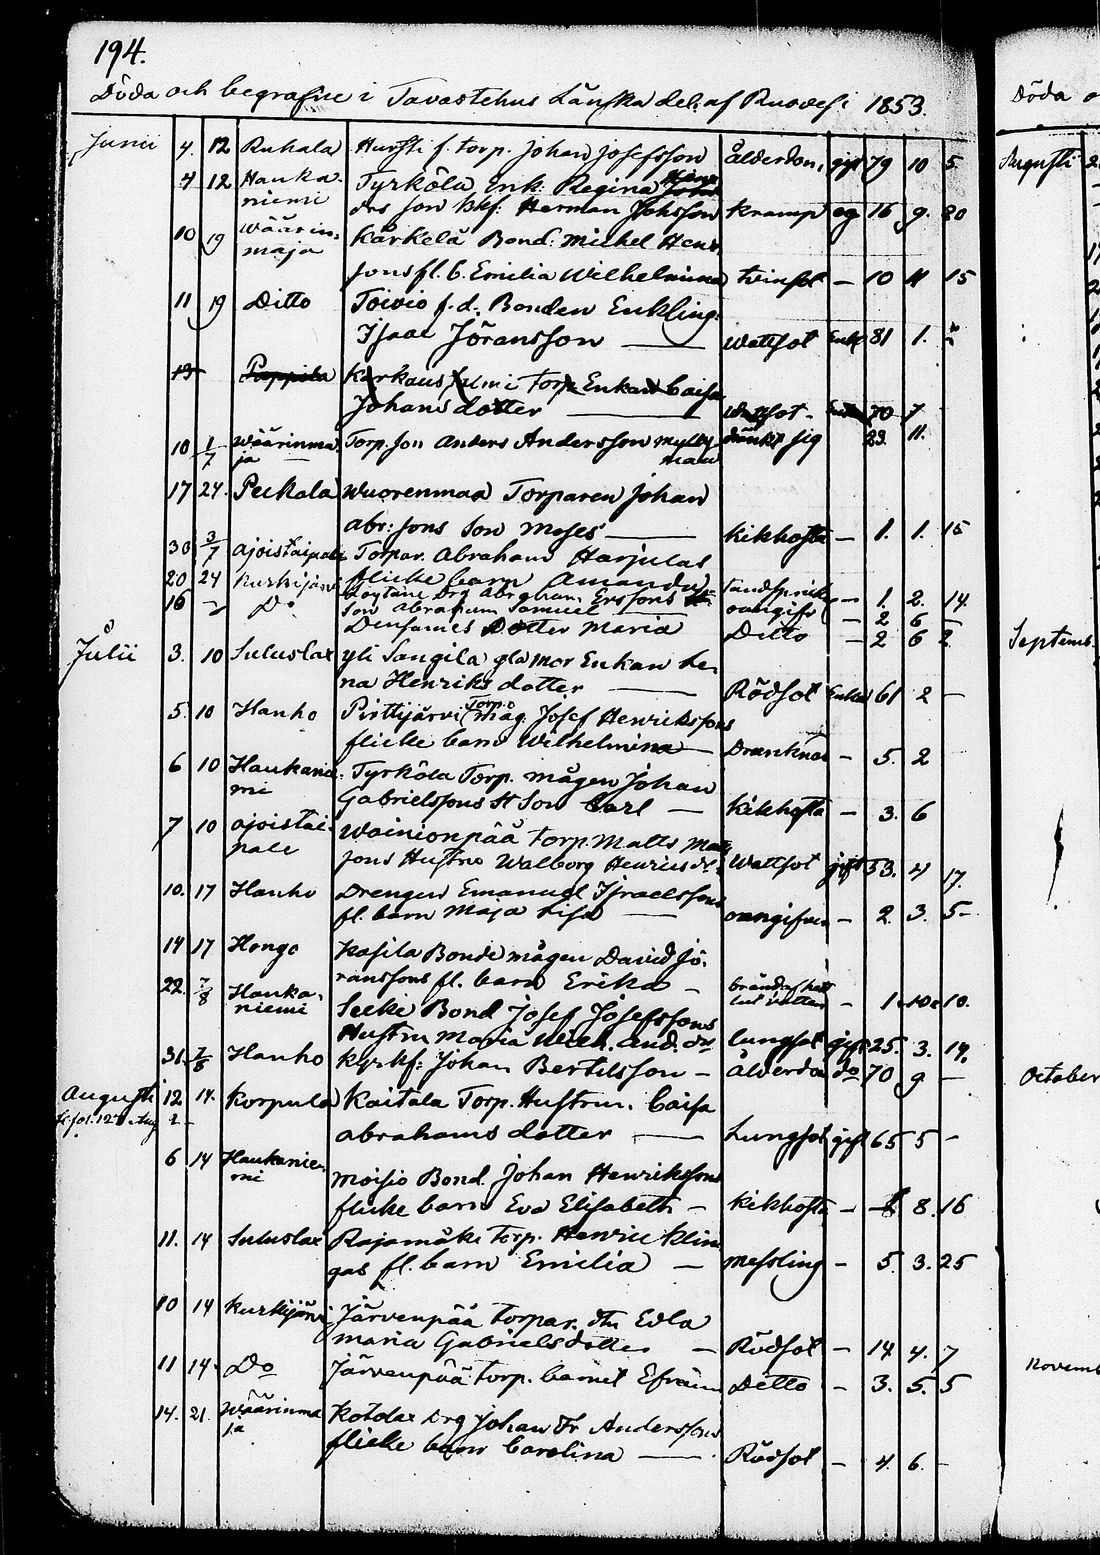 194.
Döda och begrafne i Tavastehus Länska del. af Ruovesi 1853.
Junii 4. 12 Ruhala Hursti f. torp. Johan Josefsson Ålderdom, gift 79 10 5
4 12 Hauka- Tyrkölä Enk. Regina
niemi drs son Bkf. Herman Johsson Kramp og 16 9. 20
10 19 Wäärin- Kärkelä Bond: Michel Henr.
maja sons fl. b. Emilia Wilhelmina tvinsot — 10 11 15
11 19 Ditto Toivio f.d. Bonden Enkling.
Isaac Jöransson — Wattsot Enkl 81 1.
13 Pappila Karkausjalmi torp Enkan Caisa
Johans dotter — Wattsot - 70 7
10 1/7 Wäärinma Torp. son Anders Andersson Mylly dränkt sig 23. 11.
ja — maa
17 24. Pekala Wuorenmaa Torparen Johan
Abr: sons Son Moses — Kikhosta — 1. 1. 15
30 3/7 Ajoistaipale Torpar. Abraham Harjulas
20 24 Kurkijärvi flicke barn Amanda — 1. 2. 14.
16 Do Löytäne Drg Abraham Ersons
Son Abraham Samuel — oangifv — 2 6 —
Densammes Dotter Maria Ditto — 2 6 2
Julii 3. 10 Suluslax Yli Sangila gla mor Enkan He-
na Henriks dotter — Rödsot Enka 61 2 —
5. 10 Hanho Pirttijärvi torp. mag. Josef Henrikssons
flicke barn Wilhelmina — Dranknat — 5. 2
6 10 Haukanie- Tyrkölä Torp. mågen Johan
mi Gabrielssons Son Carl — Kikhosta — 3. 6
7 10 Ajoistai- Wainionpää torp. Matts Mats
pale sons Hustru Walborg Henricsdr: Wattsot gift 53. 4 17.
10. 17 Hanho Drengen Emanuel Israelssons
fl. barn Maja Lisa — oangifven — 2. 3. 5-
14 17 Hongo Kasila Bonde mågen David Jö-
ranssons fl. barn Erika — brända hett — 1. 10. 10.
22. 7/8 Hauka- Seeke Bond Josef Josefssons
niemi Hustru Maria Wilh. And. dr Lungsot gift 25. 3. 19.
31. 7/8 Hanho Kyrkf: Johan Bertilsson — Ålderdom do 70 9 —
Augusti 12 14. Korpula Kaitala Torp. Hustrun. Caisa
Abrahams dotter — Lungsot gift 65 5 -
6 14 Haukanie- Moisio Bond. Johan Henrikssons
mi flicke barn Eva Elisabeth — Kikhosta — 8. 16
11. 14 Suluslax Rajamäki Torp. Henric Klin
gas fl. barn Emilia — Messling — 5. 3. 25
10 14 Kurkijärvi Järvenpää torpar. dtr Edla
Maria Gabrielsdotter — Rödsot — 14 4. 7
11 14. Do Järvenpää torp. barnet Efraim Ditto — 3. 5. 5
14. 21. Wäärinma Kotolax Drg Johan Fr. Anderssons
ja flicke barn Carolina — Rödsot — 4. 6. -
Döda o
Augusti
Septemb.
October
Novemb